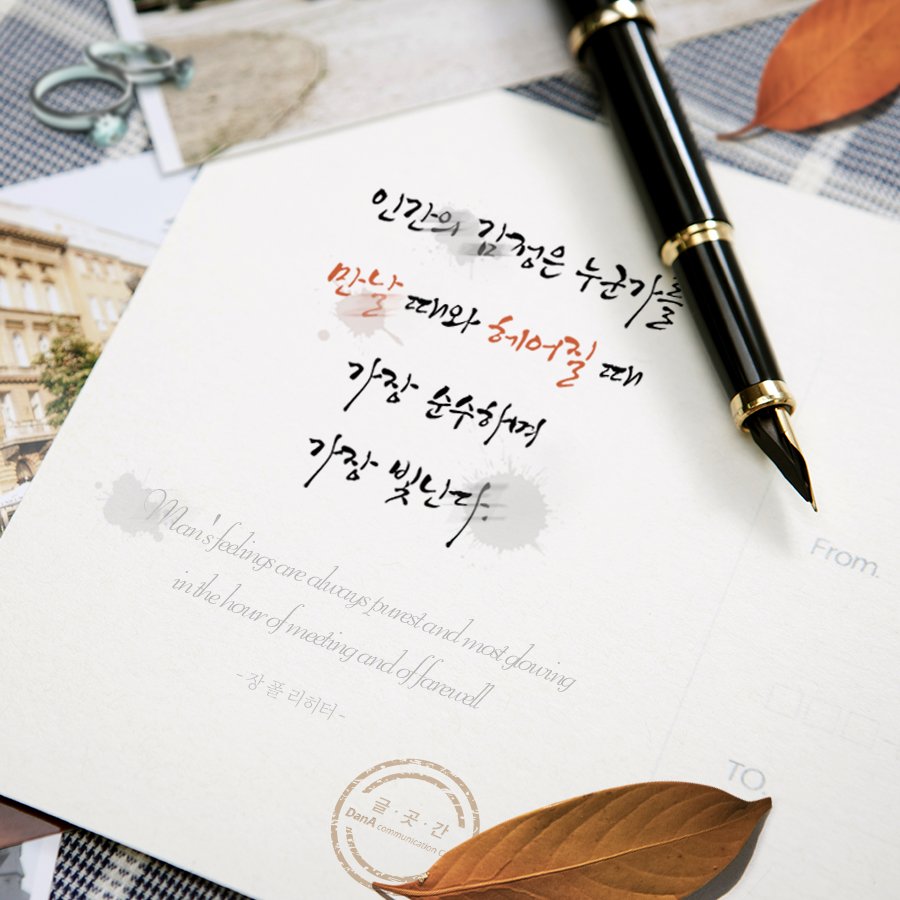 인간의 감정은 누군가를
만날 때와 헤어질 때
가장 순수하며
가장 빛난다.
Man's feelings are always purest and most glowing
in the hour of meeting and of farewell
- 장 폴 리히터 -
From.
TO.
글·곳·간
DanA communication